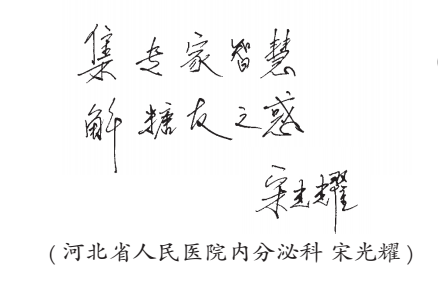 集专家智慧
解糖友之惑
宋光耀
(河北省人民医院内分泌科 宋光耀)